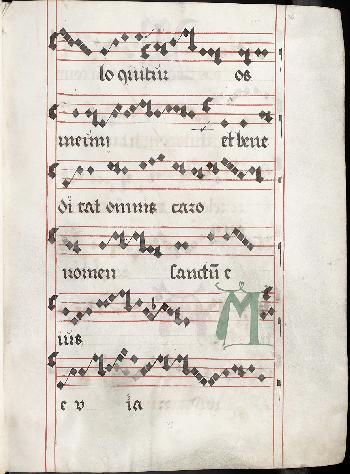 lo quitur os
meum et bene
di cat omnis caro
nomen sanctū e
ius M
e v ia